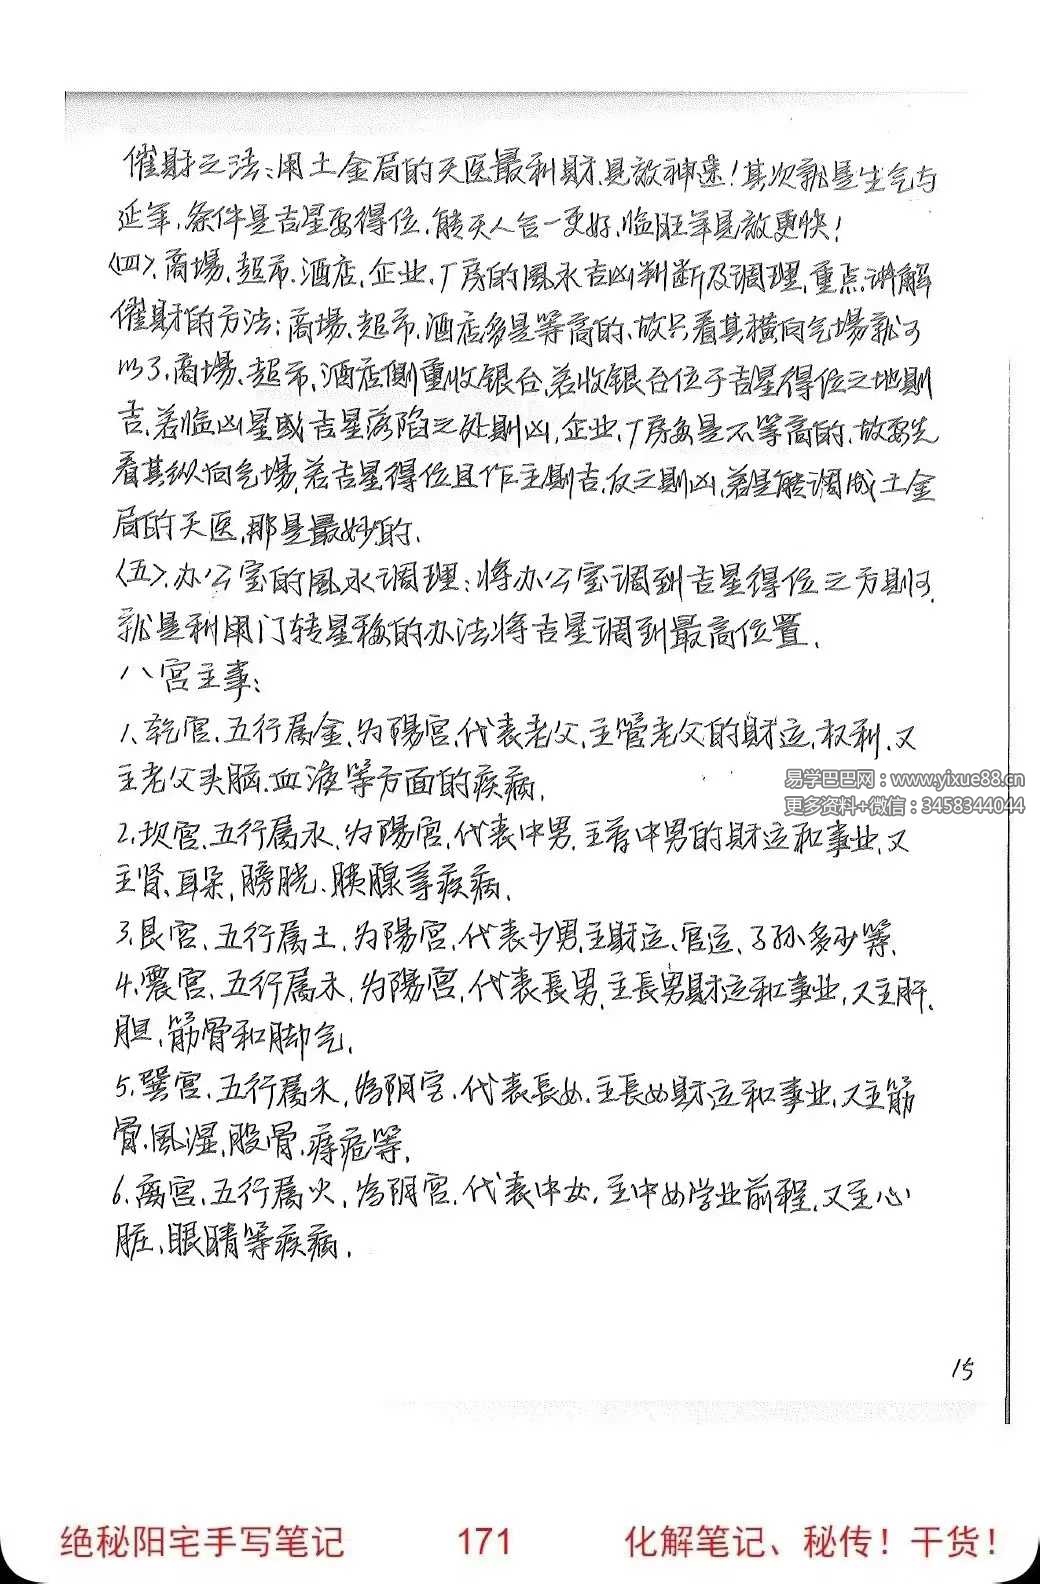 催財之法:用土金局的天医最利財,見效神速!其次就是生气与
延年,条件是吉星要得位,能天人合一更好,临旺年見效更快!
〈四〉、商場、超市、酒店、企业、厂房的風水吉凶判断及调理,重点讲解
催財的方法:商場、超市、酒店多是等高的,故只看其横向气場就可
以了,商場、超市,酒店側重收银台,若收银台位于吉星得位之地則
吉,若临凶星或吉星落陷之处則凶,企业、厂房多是不等高的,故要先
看其纵向气場,若吉星得位且作主則吉,反之則凶,若是能调成土金
局的天医,那是最妙的.
〈五〉、办公室的風水调理:将办公室调到吉星得位之方則可,
就是利用门转星移的办法将吉星调到最高位置.
八宫主事:
1、乾宫,五行属金,为陽宫,代表老父,主管老父的財运,权利,又
主老父头脑、血液等方面的疾病.
2、坎宫,五行属水,为陽宫,代表中男,主管中男的財运和事业,又
主肾、耳朵,膀胱、胰腺等疾病.
3、艮宫,五行属土,为陽宫,代表少男,主財运、官运、子孙多少等.
4、震宫,五行属木,为陽宫,代表長男,主長男財运和事业,又主肝、
胆、筋骨和脚气.
5、巽宫,五行属木,为阴宫,代表長女,主長女財运和事业,又主筋
骨、風湿、股骨、痔疮等.
6、离宫,五行属火,为阴宫,代表中女,主中女学业前程,又主心
脏、眼睛等疾病.
易学巴巴网:www.yixue88.cn
更多资料+微信:3458344044
15
绝秘阳宅手写笔记 171 化解笔记、秘传!干货!